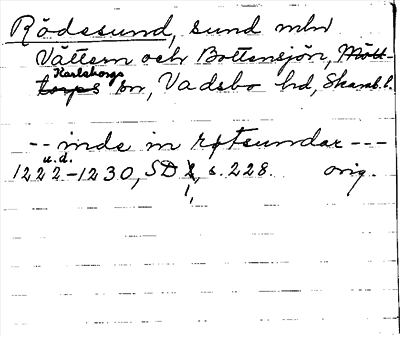 Rödesund, sund mln
Vättern och Bottensjön, Mölltorps
Karlsborgs sn, Vadsbo hd, Skarab.l.
-- inde in røtsundar ---
u.d.
1222-1230, SD 1, s. 228. orig.